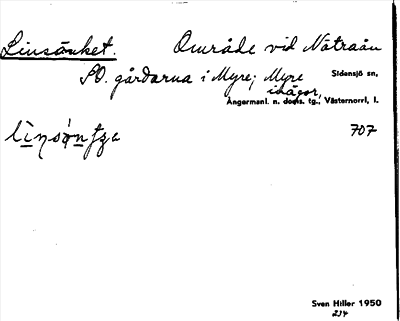 Linsänket. Område vid Nätraån
SO. gårdarna i Myre; Myre Sidensjö sn,
ihågor,
Ångermanl. n. doms. tg., Västernorrl. l.
707
Sven Hiller 1950
214